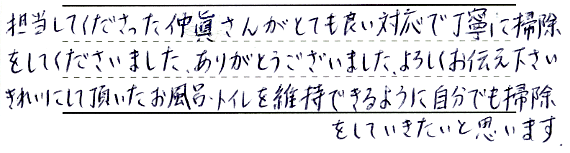 担当してくださった仲眞さんがとても良い対応で丁寧に掃除
をしてくださいました、ありがとうございました、よろしくお伝え下さい
きれいにして頂いたお風呂・トイレを維持できるように自分でも掃除
をしていきたいと思います.